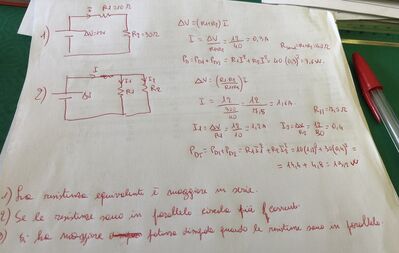 R1=10Ω
I
1)
ΔV=12V
R2=30Ω
ΔV=(R1+R2)I
I = ΔV/(R1+R2) = 12/40 = 0,3A
PD=PD1+PD2=R1I²+R2I²=40(0,3)²=3,6W
2)
I
ΔV
I1
I2
R1
R2
ΔV=(R1·R2/(R1+R2))I
I = 12/(300/40) = 12/7,5 = 1,6A
R// = 7,5Ω
I1=ΔV/R1=12/10=1,2A I2=ΔV/R2=12/30=0,4
PDT=PD1+PD2=R1I1²+R2I2²=10(1,2)²+30(0,4)²=
= 14,4 + 4,8 = 19,2W
1) La resistenza equivalente è maggiore in serie.
2) Se le resistenze sono in parallelo circola più corrente.
3) Si ha maggiore potenza dissipata quando le resistenze sono in parallelo.